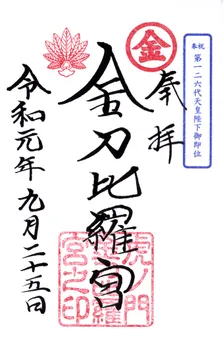 奉祝
第一二六代天皇陛下御即位
奉拝
金
金刀比羅宮
虎ノ門
金刀比羅
宮之印
令和元年九月二十五日